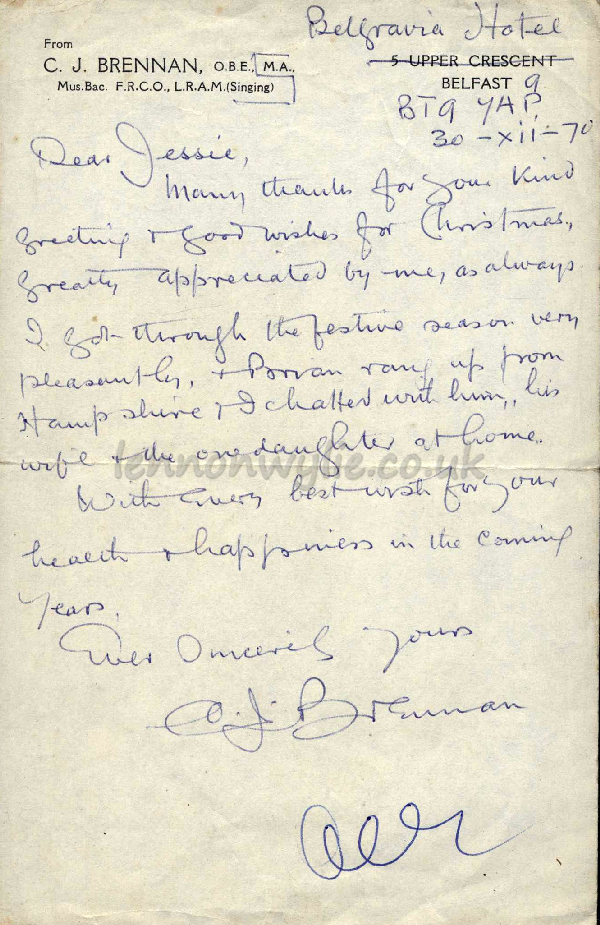 Belgravia Hotel
From
C. J. BRENNAN, O.B.E., M.A.,
Mus.Bac. F.R.C.O., L.R.A.M.(Singing)
5 UPPER CRESCENT
BELFAST 9
BT9 7AP.
30-XII-70
Dear Jessie,
Many thanks for your kind
greeting & good wishes for Christmas,
greatly appreciated by me, as always
I got through the festive season very
pleasantly, & Brian rang up from
Hampshire & I chatted with him, his
wife & the one daughter at home.
lennonwylie.co.uk
With every best wish for your
health & happiness in the coming
Years.
Ever Sincerely yours
C. J. Brennan